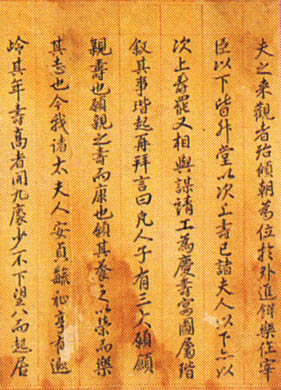 夫之来觀者殆傾朝為位於外進饌樂作宰
臣以下皆升堂以次上壽已諸夫人以下亦以
次上壽罷又相與謀請工為慶壽宴圖屬階
叙其事階起再拜言曰凡人子有三大願願
親壽也願親之壽而康也願其養之以榮而樂
其志也今我諸太夫人安貞毓祉享有遐
齡其年壽高者開九袠少亦不下望八而起居